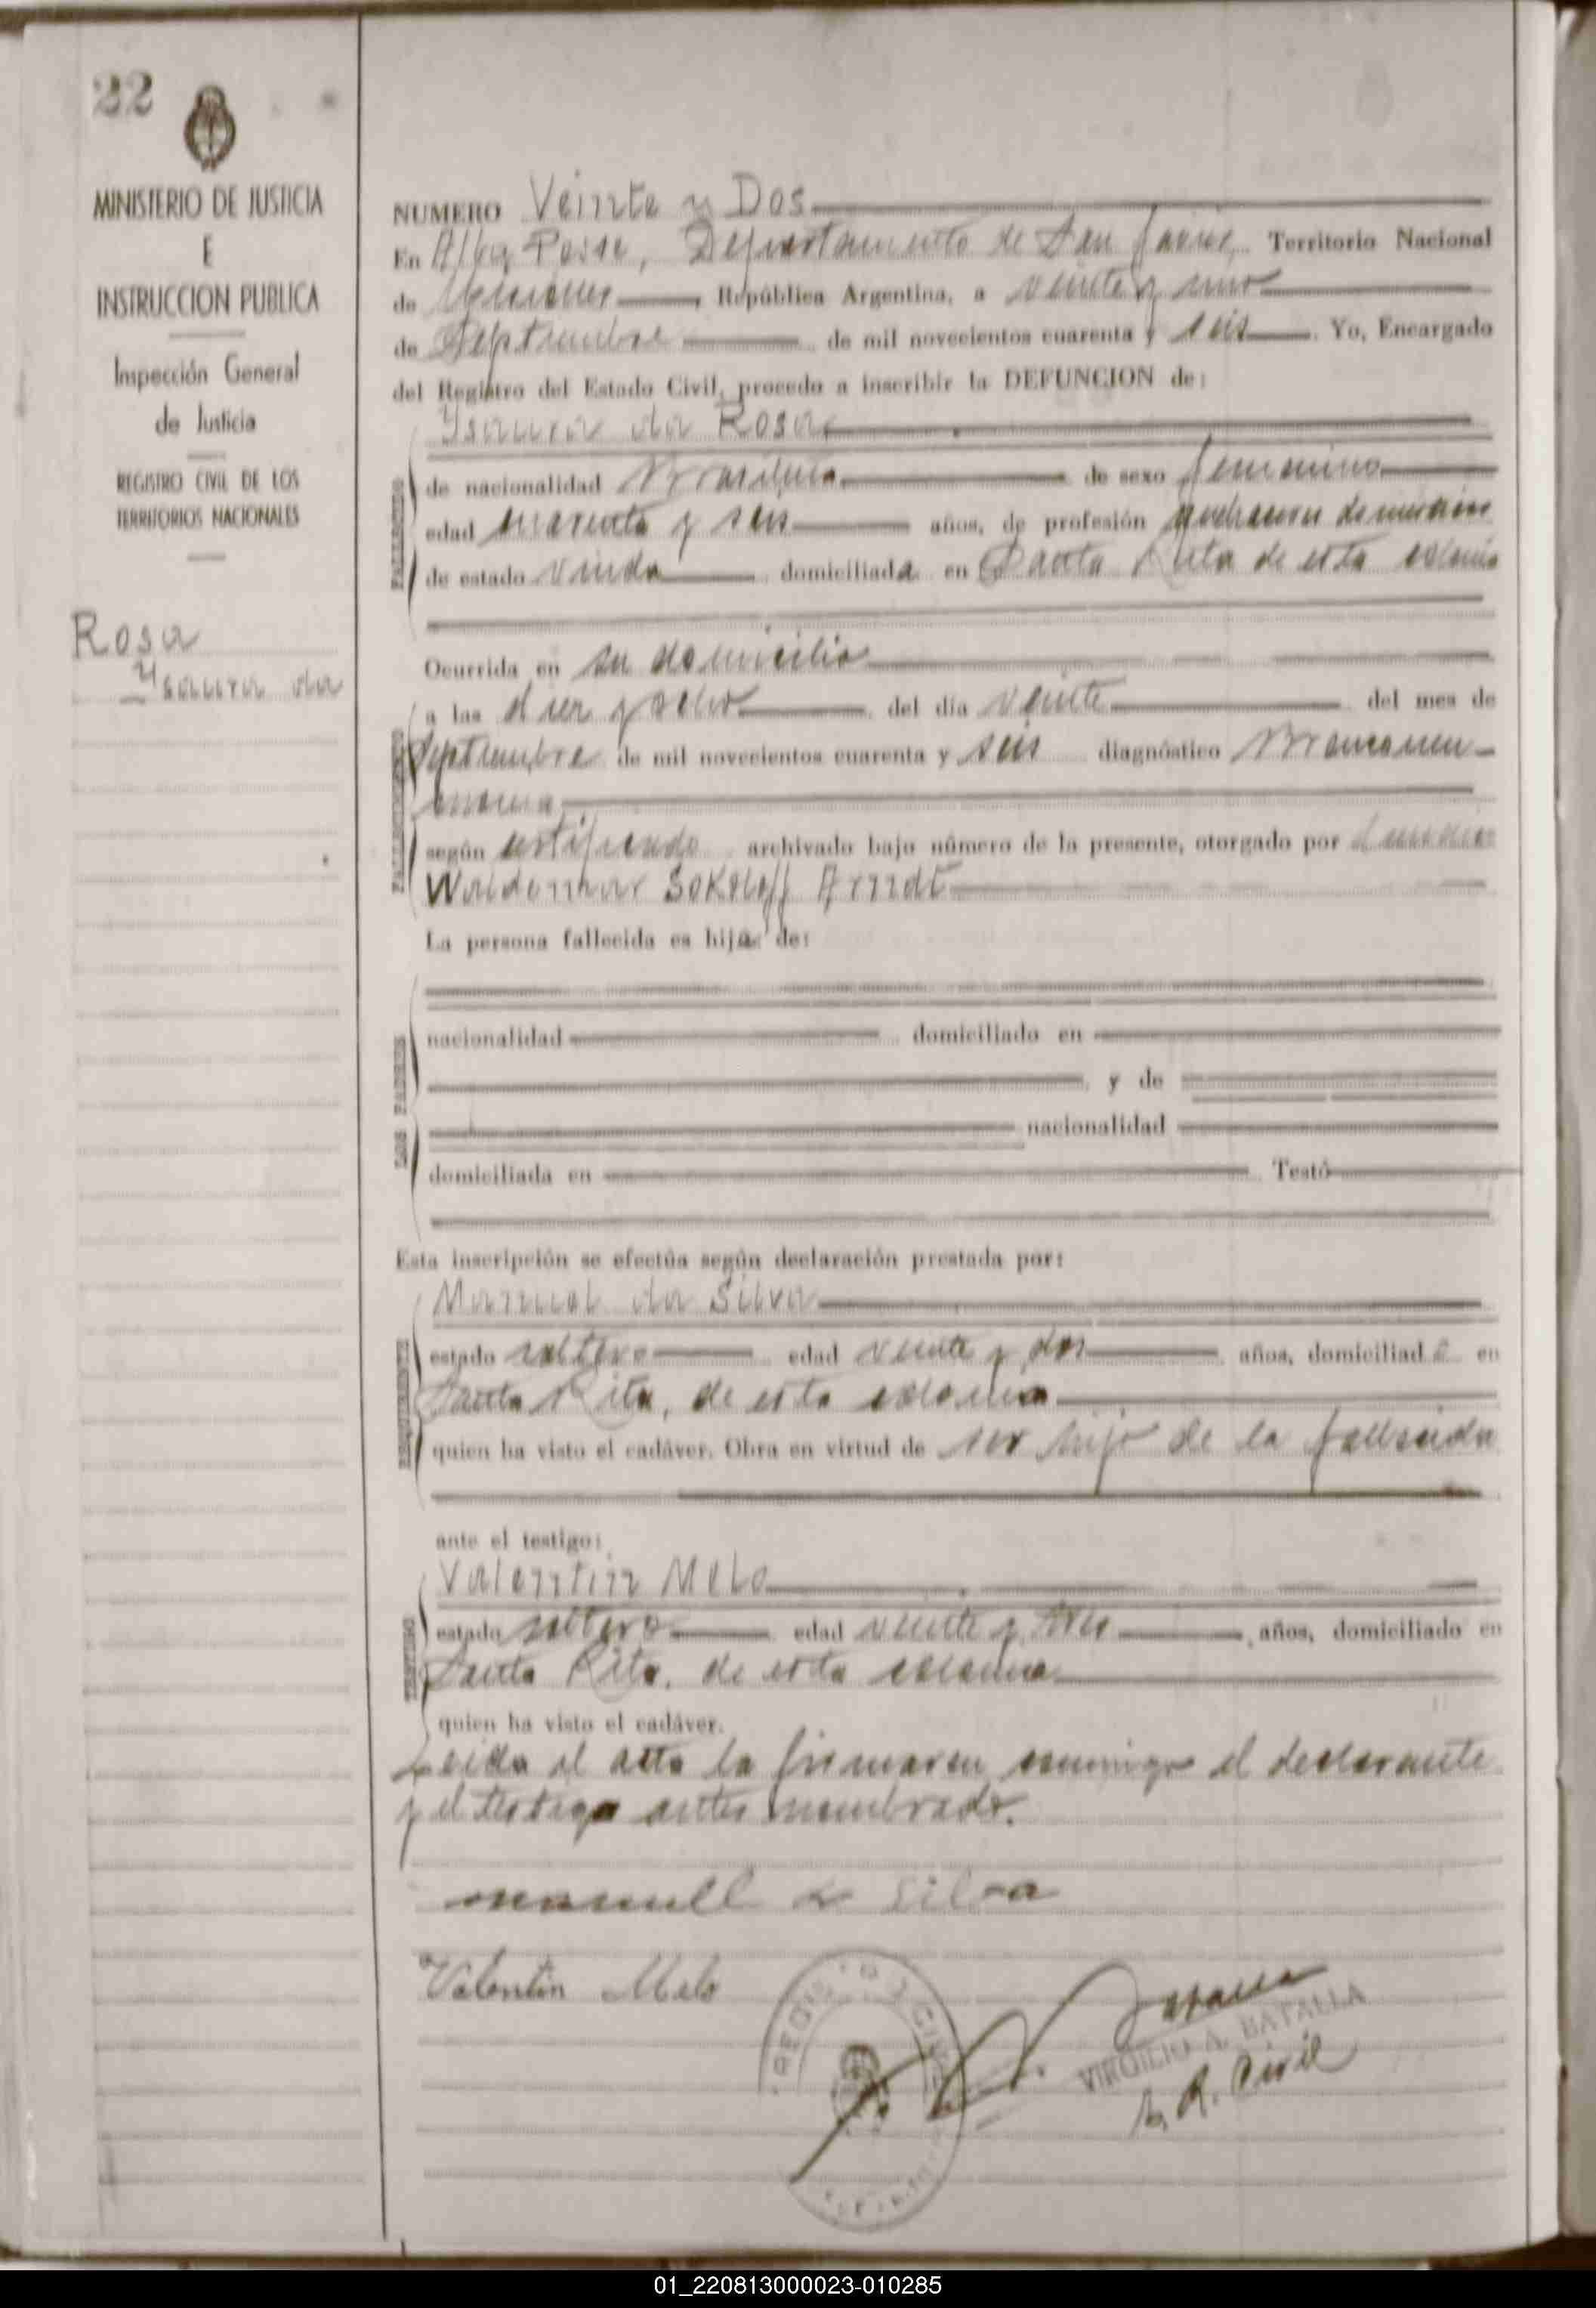 22
MINISTERIO DE JUSTICIA
E
INSTRUCCION PUBLICA
Inspección General
de Justicia
REGISTRO CIVIL DE LOS
TERRITORIOS NACIONALES
Rosa
Ysaura da
NUMERO Veinte y Dos
En Alba Posse, Departamento de San Javier, Territorio Nacional
de Misiones, República Argentina, a veinte y uno
de Septiembre de mil novecientos cuarenta y seis. Yo, Encargado
del Registro del Estado Civil, procedo a inscribir la DEFUNCION de:
Ysaura da Rosa
FALLECIDO
de nacionalidad Brasileña de sexo femenino
edad cuarenta y seis años, de profesión
de estado viuda domiciliada en Santa Rita de esta colonia
Ocurrida en su domicilio
FALLECIMIENTO
a las diez y ocho del día veinte del mes de
Septiembre de mil novecientos cuarenta y seis diagnóstico Bronconeu-
monia
según certificado archivado bajo número de la presente, otorgado por
Waldemar Sokoloff Arndt
La persona fallecida es hija de:
LOS PADRES
nacionalidad domiciliado en
y de
nacionalidad
domiciliada en Testó
Esta inscripción se efectúa según declaración prestada por:
REQUIRENTE
Manuel da Silva
estado soltero edad veinte y dos años, domiciliado en
Santa Rita, de esta colonia
quien ha visto el cadáver. Obra en virtud de ser hijo de la fallecida
ante el testigo:
TESTIGO
Valentin Melo
estado soltero edad veinte y tres años, domiciliado en
Santa Rita, de esta colonia
quien ha visto el cadáver.
Leida el acta la firmaron conmigo el declarante
y el testigo antes nombrado.
manuell Silva
Valentin Melo
REGISTRO CIVIL
VIRGILIO A. BATALLA
R. Civil
01_220813000023-010285